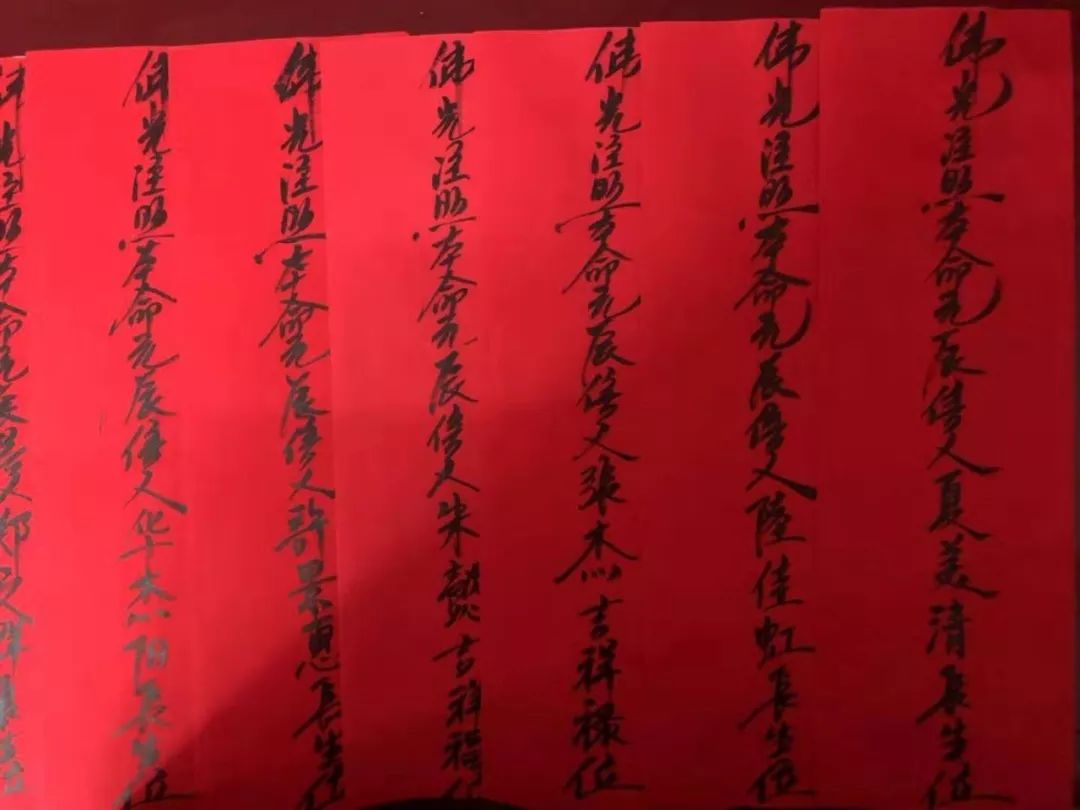 佛光注照本命元辰信人夏美清長生位
佛光注照本命元辰信人陸佳虹長生位
佛光注照本命元辰信人張杰吉祥禄位
佛光注照本命元辰信人朱懿吉祥禄位
佛光注照本命元辰信人許景惠長生位
佛光注照本命元辰信人华杰陽長生位
佛光注照本命元辰信人鄭